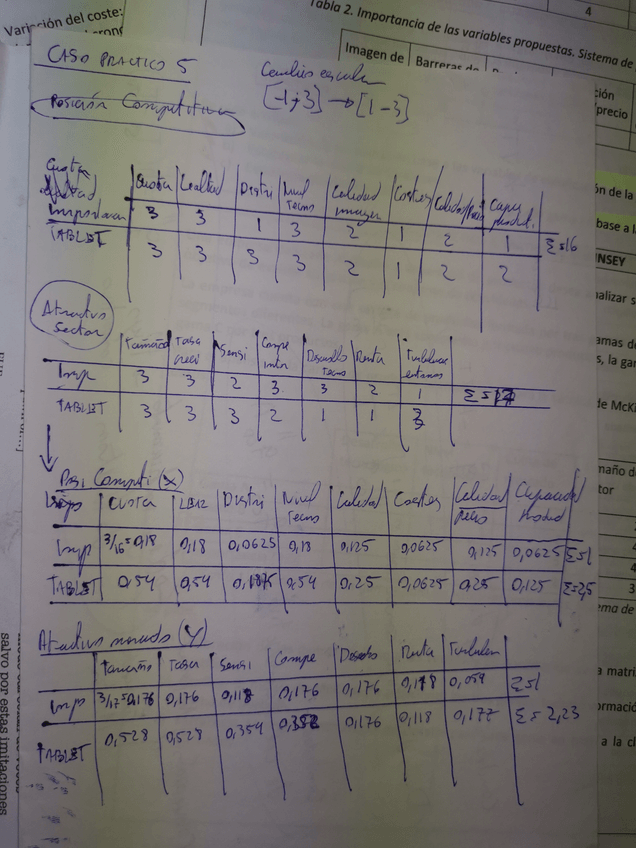 Variación del coste:
4
Tabla 2. Importancia de las variables propuestas. Sistema de
Imagen de
Barreras de
ción
/precio
CASO PRACTICO 5
Cambio escala
[-1;3] → [1-3]
Posición Competitiva
Cuota
Cuota Lealtad Distri Nivel tecno Calidad imagen Costes Calidad/Precio Capac product.
Importancia 3 3 1 3 2 1 2 1 Σ=16
TABLET 3 3 3 3 2 1 2 2
Atractivo sector
Tamaño Tasa creci Sensi Compe inten Desarrollo tecno Renta Turbulencia entorno
Imp 3 3 2 3 3 2 1 Σ=17
TABLET 3 3 3 2 1 1 3
Posi Competi (X)
Cuota Distri Nivel tecno Calidad Costes Calidad/precio Capacidad produd
Imp 3/16=0,18 0,18 0,0625 0,18 0,125 0,0625 0,125 0,0625 Σ=1
TABLET 0,54 0,54 0,1875 0,54 0,25 0,0625 0,25 0,125 Σ=2,5
Atractivo mercado (Y)
Tamaño Tasa Sensi Compe Desarro Renta Turbulen
Imp 3/17=0,176 0,176 0,118 0,176 0,176 0,118 0,059 Σ=1
TABLET 0,528 0,528 0,354 0,352 0,176 0,118 0,177 Σ=2,23
ón de la
base a la
NSEY
nalizar s
amas de
s, la gar
de McKi
maño d
tor
4
4
3
ema de
a matri
ormació
a la ci
salvo por estas imitaciones